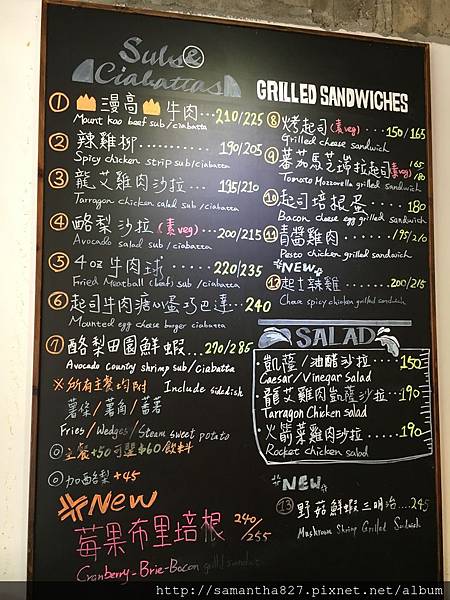 Subs &
Ciabattas
① 漫高 牛肉...210/225
Mount Koo beef sub / ciabatta
② 辣雞柳..........190/205
Spicy chicken strip sub/ciabatta
③ 龍艾雞肉沙拉...195/210
Tarragon chicken salad sub/ciabatta
④ 酪梨沙拉(素veg)...200/215
Avocado salad sub/ciabatta
⑤ 4oz牛肉球.......220/235
Fried Meatball (beef) sub/ciabatta
⑥ 起司牛肉溏心蛋巧巴達...240
Mounted egg cheese burger ciabatta
⑦ 酪梨田園鮮蝦...270/285
Avocado country shrimp sub/Ciabatta
※所有主餐均附 Include sidedish
薯條/薯角/蕃薯
Fries/Wedges/Steam sweet potato
◎主餐+50可選$60飲料
◎加酪梨+45
NEW
莓果布里培根 240/255
Cranberry-Brie-Bacon grilled
GRILLED SANDWICHES
⑧ 烤起司(素veg)....150/165
Grilled cheese sandwich
⑨ 蕃茄馬芝瑞拉起司(素veg) 165/180
Tomato Mozzarella grilled sandwich
⑩ 起司培根蛋.......180
Bacon cheese egg grilled sandwich
⑪ 青醬雞肉......195/210
Pesto chicken grilled sandwich
NEW
⑫ 起士辣雞.......200/215
Cheese spicy chicken grilled sandwich
SALAD
凱薩/油醋沙拉...150
Caesar/Vinegar Salad
龍艾雞肉凱薩沙拉...190
Tarragon Chicken salad
火箭菜雞肉沙拉......190
Rocket chicken salad
NEW
⑬ 野菇鮮蝦三明治...245
Mushroom Shrimp Grilled Sandwich
http://samantha827.pixnet.net/album